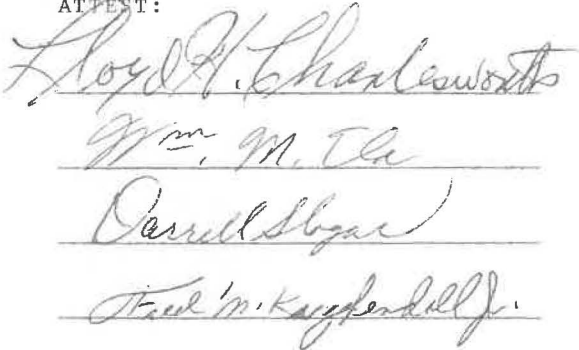 ATTEST:
Lloyd H. Charlesworth
Wm. M. Ela
Darrell
M. Kuykendall Jr.